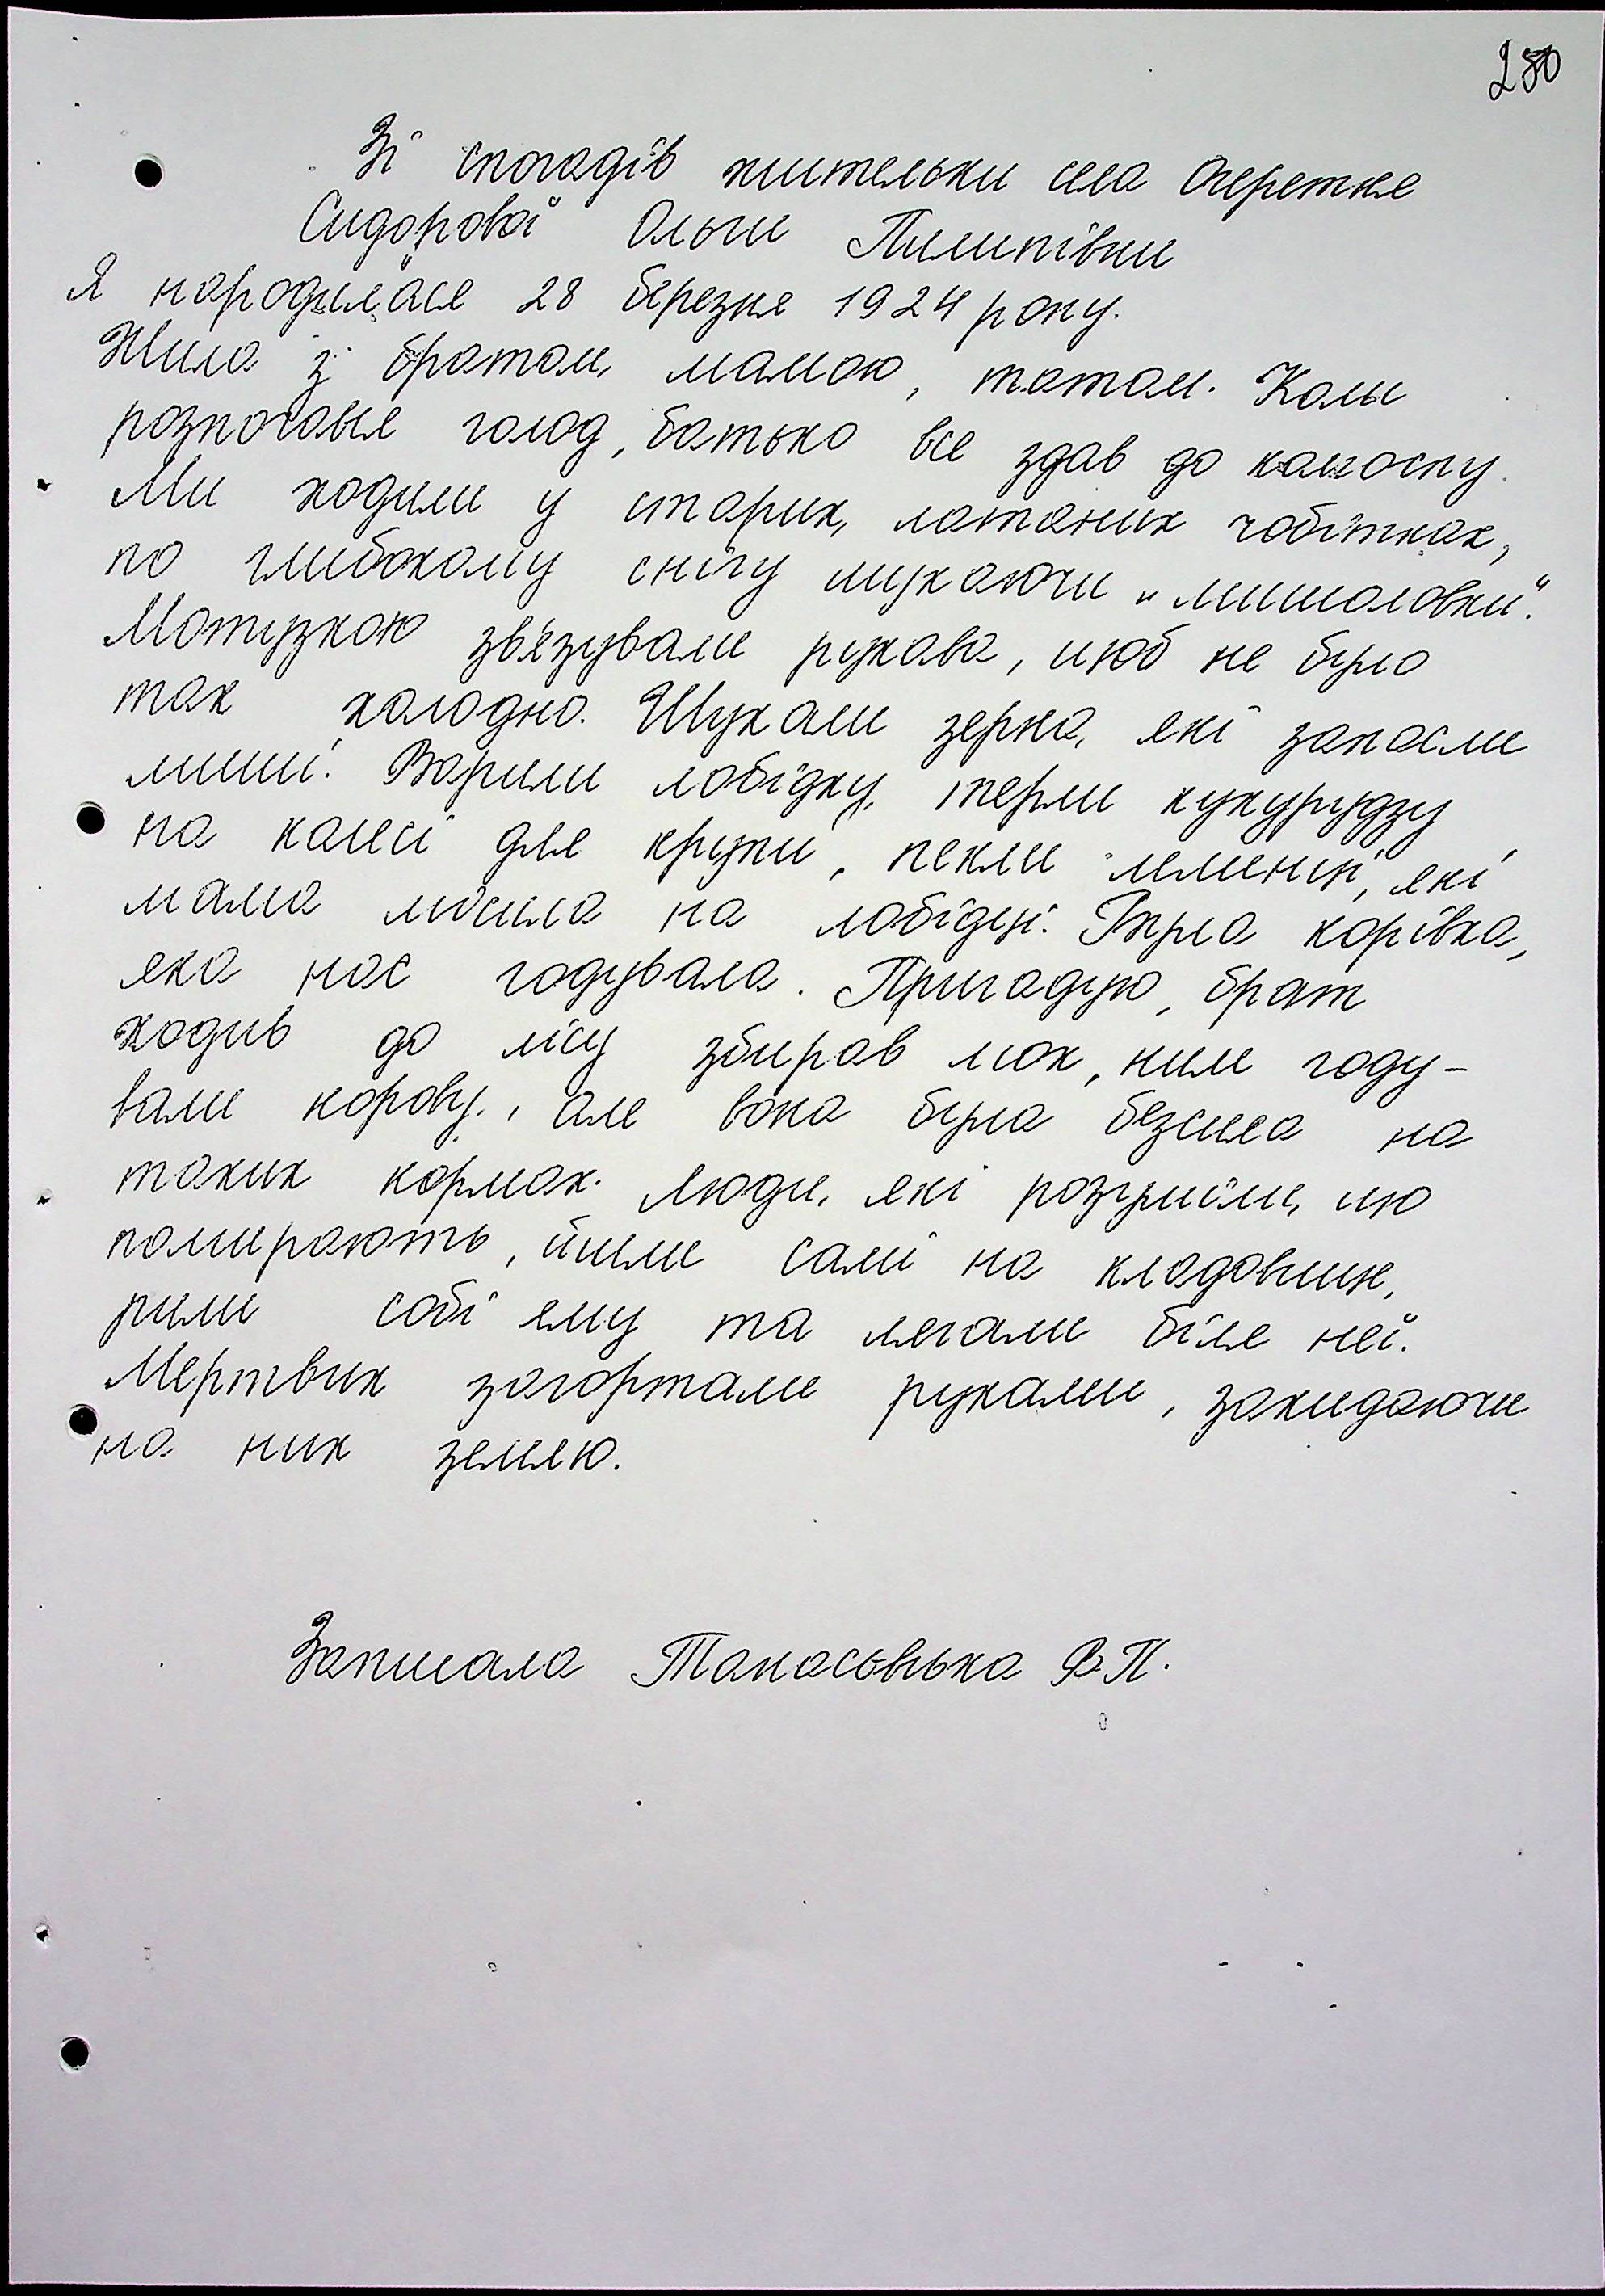 280
Зі спогадів жительки села Очеретня
Сидорової Ольги Пилипівни
Я народилася 28 березня 1924 року.
Жила з братом, мамою, татом. Коли
розпочався голод, батько все здав до колгоспу.
Ми ходили у старих, латаних чобітках,
по глибокому снігу шукаючи „мишоловки".
Мотузкою зв'язували рукава, щоб не було
так холодно. Шукали зерна, які запасли
миші. Варили лобідку, терли кукурудзу
на каміні для крупи, пекли млинці, які
мама місила на лобідці. Була корівка,
яка нас годувала. Пригадую, брат
ходив до лісу збирав мох, ним году-
вали корову, але вона була безсила на
таких кормах. Люди, які розуміли, що
помирають, йшли самі на кладовище,
рили собі яму та лягали біля неї.
Мертвих загортали руками, закидаючи
на них землю.
Записала Танасьвська В.П.